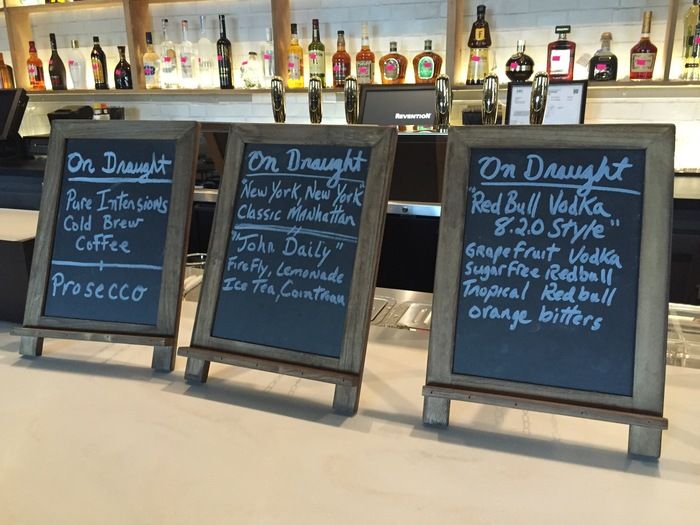 On Draught
Pure Intensions
Cold Brew
Coffee
Prosecco
On Draught
New York, New York"
Classic Manhattan
"John Daily"
Firefly, Lemonade
Ice Tea, Cointreau
On Draught
"Red Bull Vodka
8.2.0 Style"
Grapefruit Vodka
Sugar Free Redbull
Tropical Redbull
orange bitters
Revention